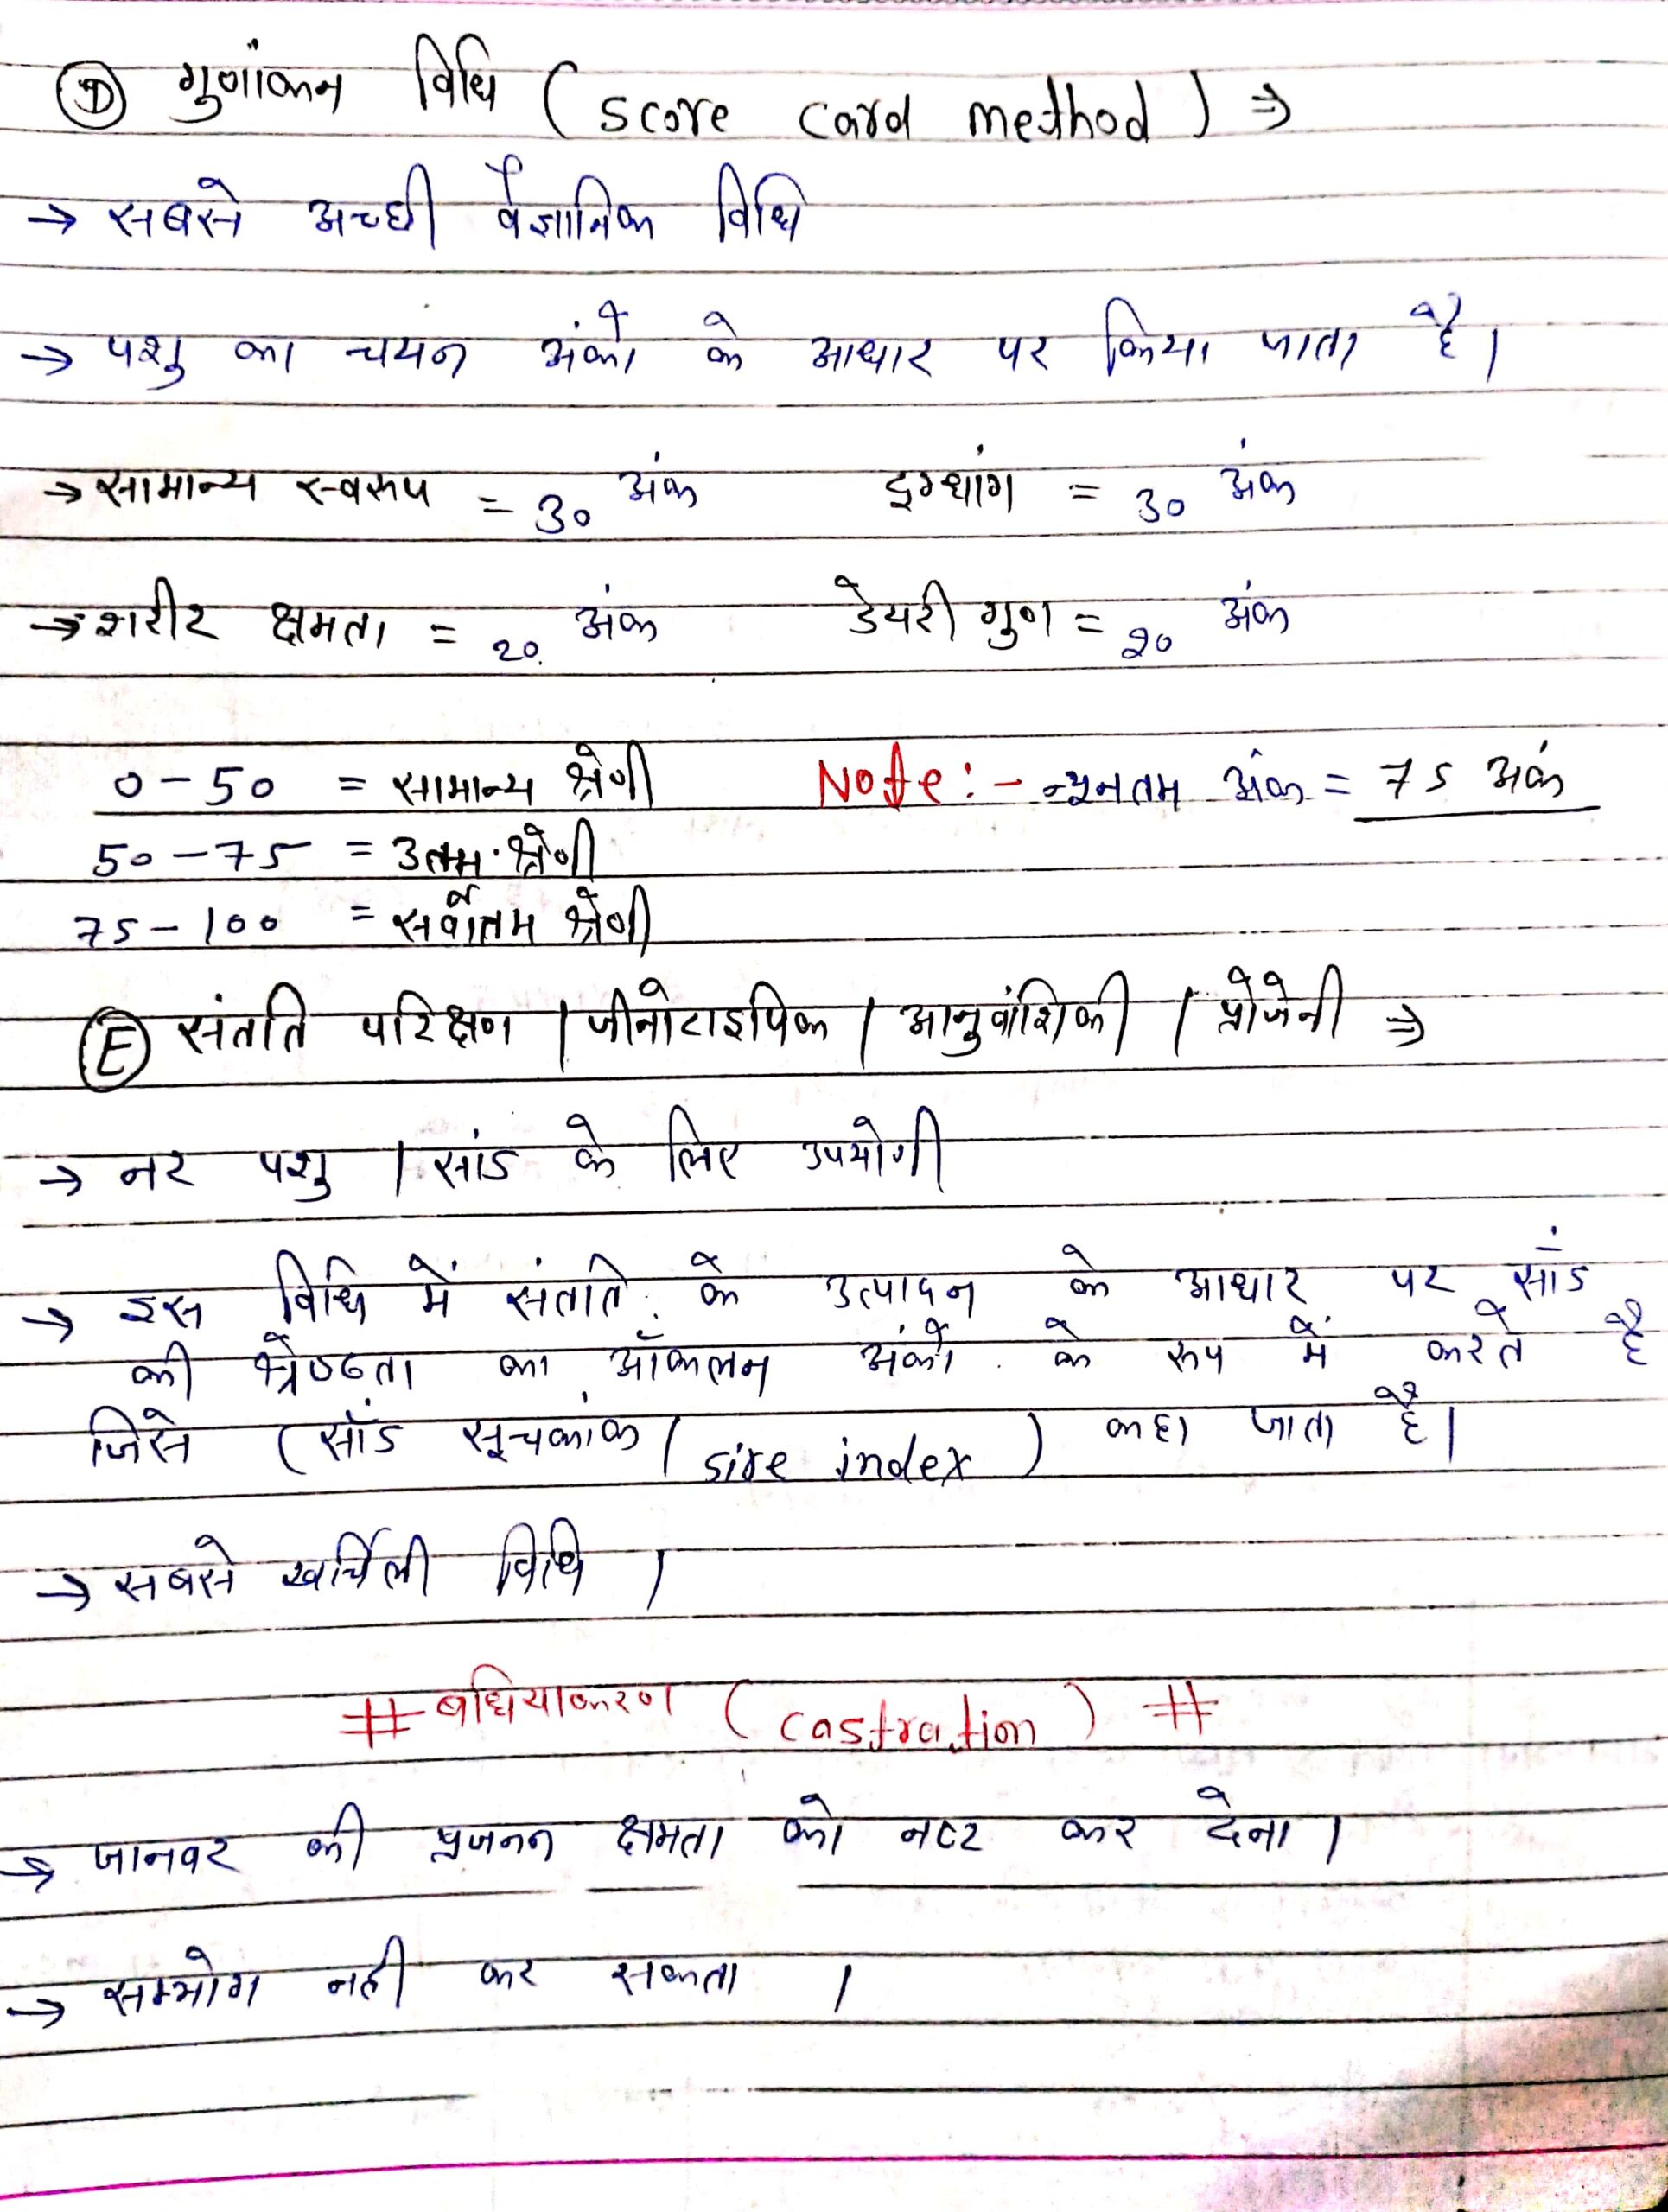 (D) गुणांकन विधि (score card method) ⇒
→ सबसे अच्छी वैज्ञानिक विधि
→ पशु का चयन अंको के आधार पर किया जाता है।
→ सामान्य स्वरूप = 30 अंक दुग्धांग = 30 अंक
→ शरीर क्षमता = 20 अंक डेयरी गुण = 20 अंक
0 - 50 = सामान्य श्रेणी Note :- न्यूनतम अंक = 75 अंक
50 - 75 = उतम श्रेणी
75 - 100 = सर्वोतम श्रेणी
(E) संतति परिक्षण / जीनोटाइपिक / आनुवांशिकी / प्रोजेनी ⇒
→ नर पशु / सांड के लिए उपयोगी
→ इस विधि में संतति के उत्पादन के आधार पर सांड
की श्रेष्ठता का आँकलन अंको के रूप में करते है
जिसे (साँड सूचकांक / sire index) कहा जाता है।
→ सबसे खर्चिली विधि ।
# बधियाकरण (castration) #
→ जानवर की प्रजनन क्षमता को नष्ट कर देना।
→ सम्भोग नही कर सकता ।